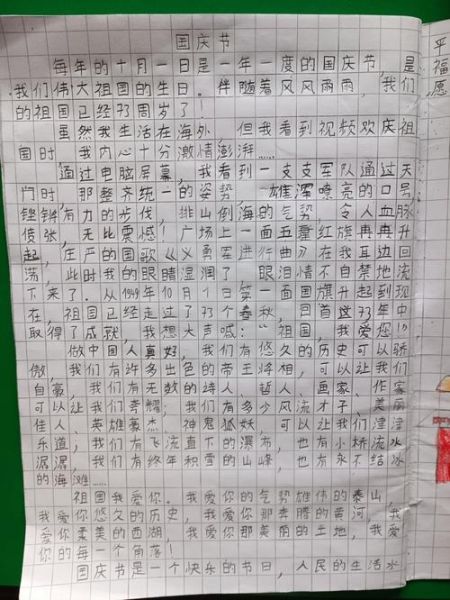 国庆节
每年的十月一日是一年一度的国庆节，是
我们伟大祖国的生日。伴随着风风雨雨，我们
的祖国已经73周岁了！
虽然我生活在海外，但我看到视频欢庆祖
国时，我内心十分激情澎湃……
通过电脑屏幕，我看到一支支军队通过天
门时，那整齐统一的姿势，雄浑嘹亮的口号，
铿锵有力的步伐，排山倒海的气势，令人血脉
偾张，无比震憾！广场上一面五章红旗冉冉升
起，庄严的国歌《义勇军进行曲》在我耳边回
荡，此时我的眼睛湿润了，眼泪情不自禁地流
下来了。从1949年10月1日第一面国旗升起到现
在，祖国已经走过了73个春秋，回首这73年中
取得了成就，我想大声喊：“祖国，我爱您！”
做中国人真好，我们有悠久的历史可以骄
傲，我们有许多出色的帝王将相，可以让我们
自豪，我们有无数的诗人、哲人、画家、作家
可以让我们夸耀；我们有多少风流才子、美丽
佳人、英雄豪杰、神鬼狐妖，可以让我们津津
乐道，我们有飞流直下的瀑布，也有小桥流水
潺潺，我们有终年积雪的山峰，也有永不结冰
的海滩……
祖国我爱你。我爱你的气势雄伟的泰山，
我爱你悠久的历史，我爱你那奔腾的黄河，我
爱你柔美的西湖，我爱你那美丽的土地，我爱
你的每一个角落！
国庆节是一个快乐的节日，人民的生活水
平
福
愿